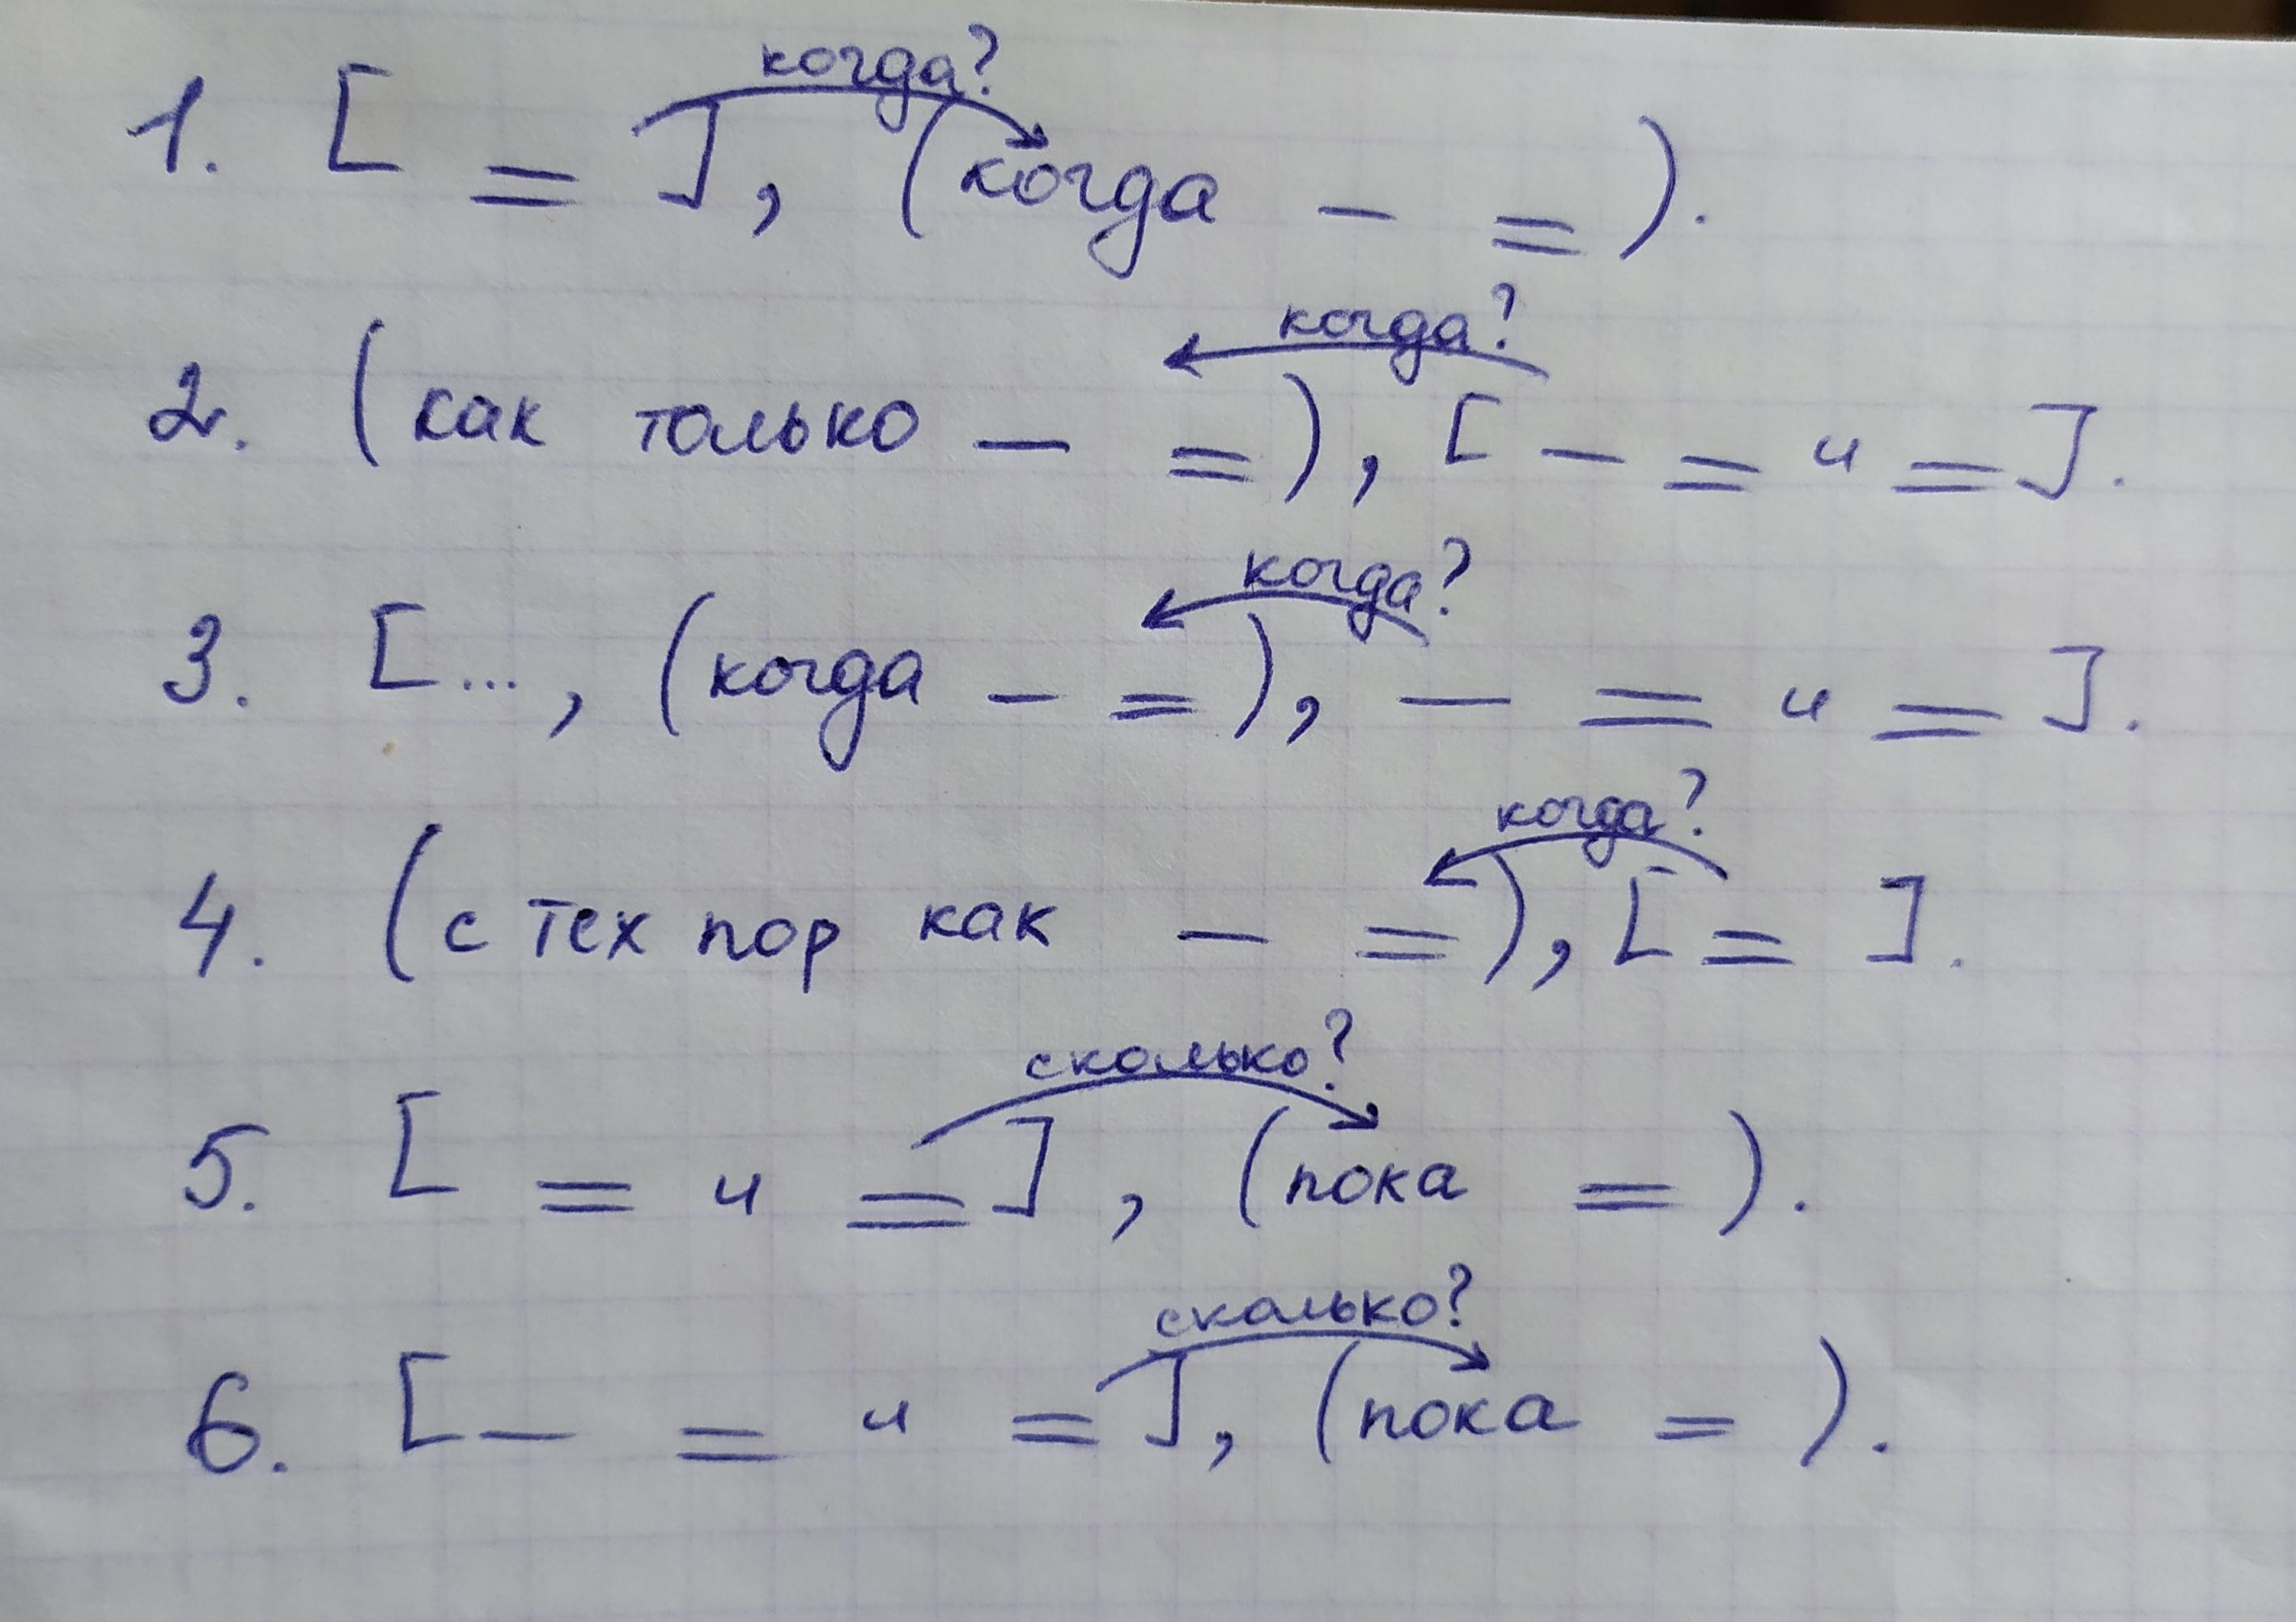 когда?
1. [ = ], (когда – = ).
когда?
2. (как только – = ), [ – = и = ].
когда?
3. [ ... , (когда – = ), – = и = ].
когда?
4. (с тех пор как – = ), [ = ].
сколько?
5. [ = и = ], (пока = ).
сколько?
6. [ – = и = ], (пока = ).